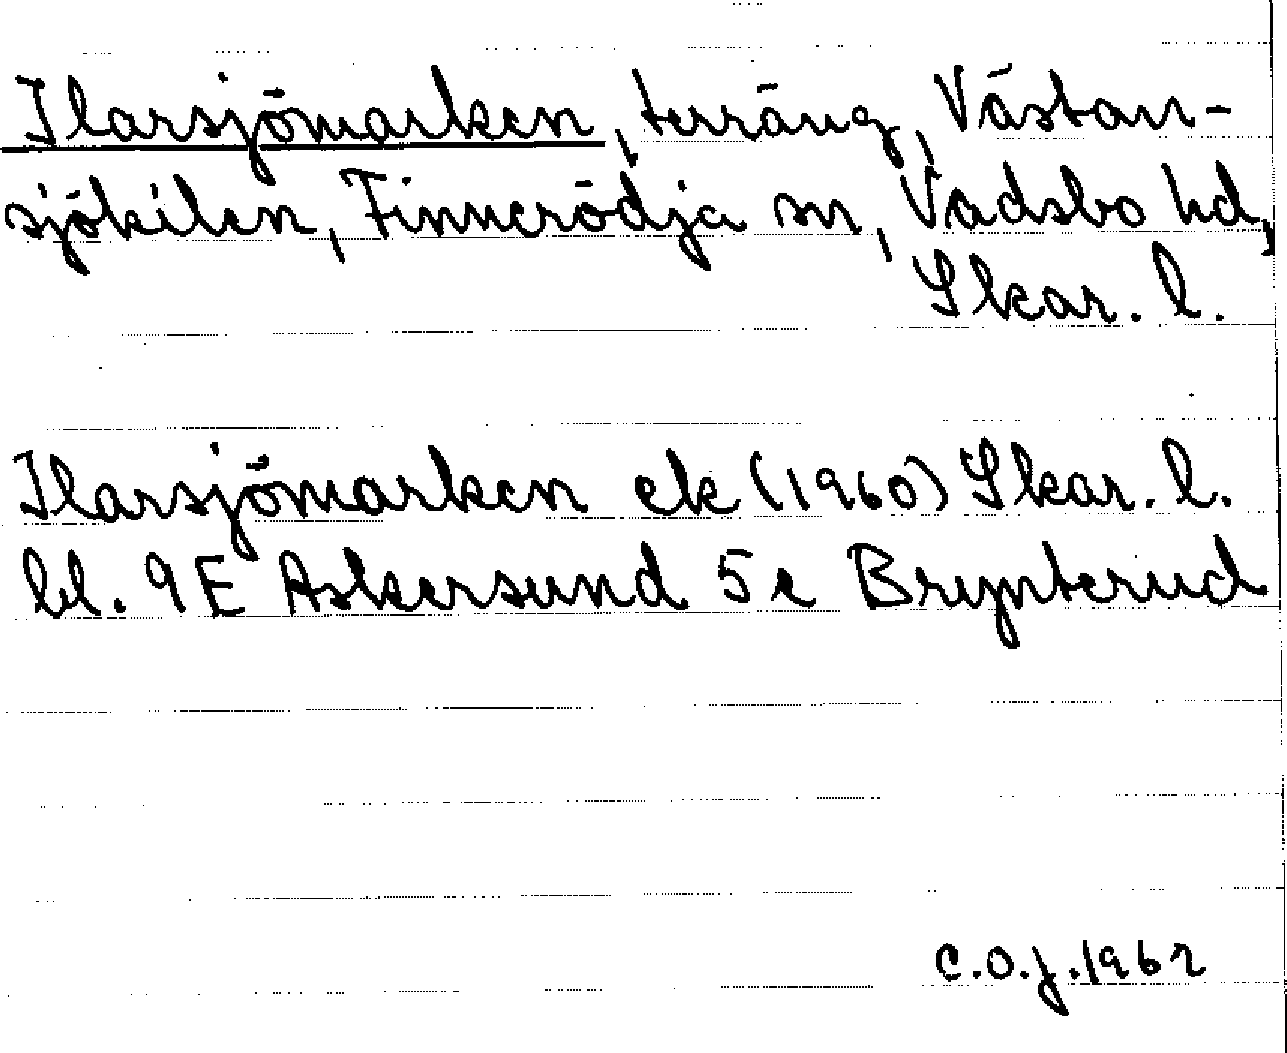 Ilarsjömarken, terräng, Västan-
sjökilen, Finnerödja sn, Vadsbo hd,
Skar. l.
Ilarsjömarken ek (1960) Skar. l.
bl. 9E Askersund 5e Brynterud
C.O.J. 1962